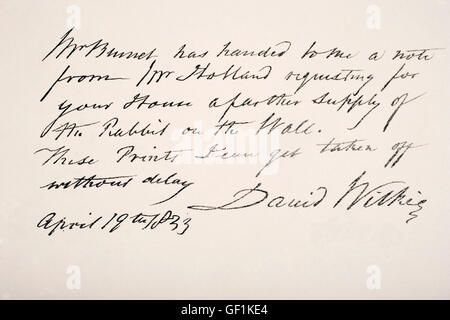 Mr Burnet has handed to me a note
from Mr Holland requesting for
your House a farther supply of
the Rabbit on the Wall.
These Prints I can get taken off
without delay
David Wilkie
April 19th 1833
alamy stock photo
GF1KE4
www.alamy.com